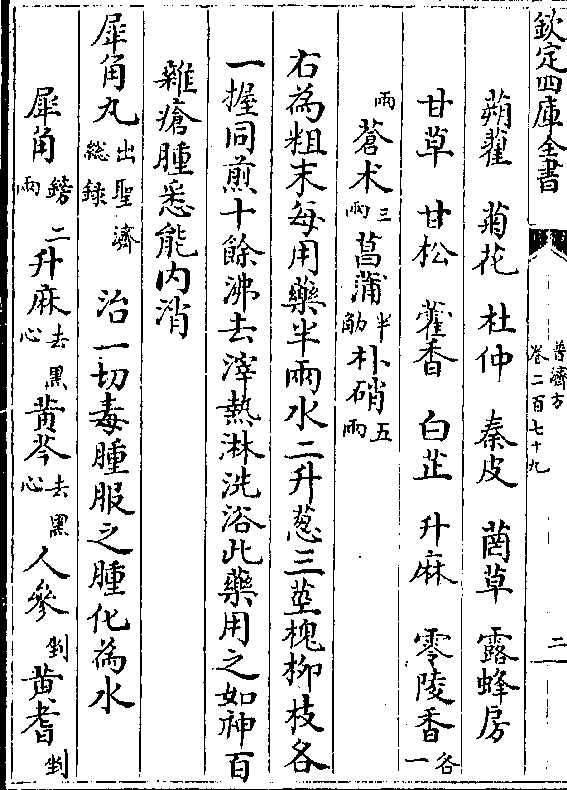 欽定四庫全書
普濟方
卷二百七十九
二
蒴藋 菊花 杜仲 秦皮 䓖草 露蜂房
甘草 甘松 藿香 白芷 升麻 零陵香各一
兩 蒼术三兩 菖蒲半觔 朴硝五兩
右為粗末每用藥半兩水二升葱三莖槐柳枝各
一握同煎十餘沸去滓熱淋洗浴此藥用之如神百
雜瘡腫悉能内消
犀角丸出聖濟總録 治一切毒腫服之腫化為水
犀角鎊二兩 升麻去黑心 黄芩去黑心 人參剉 黄耆剉